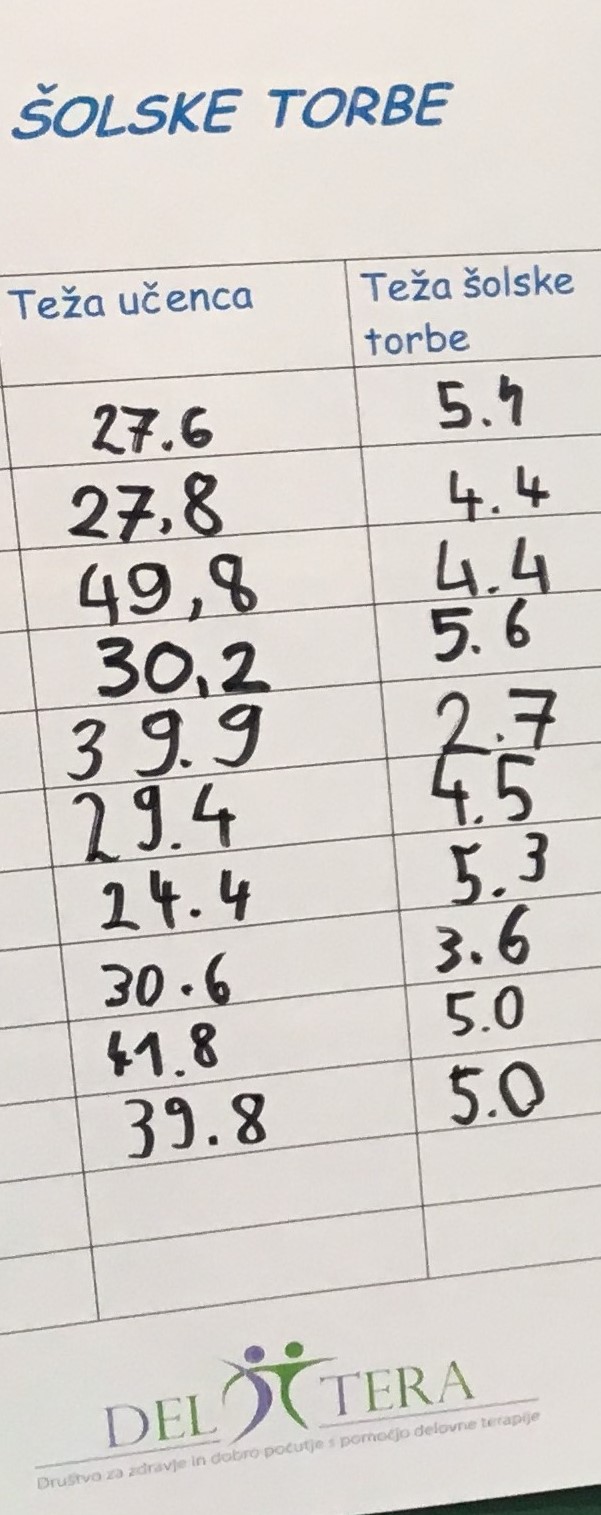 ŠOLSKE TORBE
Teža učenca Teža šolske torbe
27.6 5.4
27,8 4.4
49,8 4.4
30,2 5.6
39.9 2.7
29.4 4.5
24.4 5.3
30.6 3.6
41.8 5.0
39.8 5.0
DELTERA
Društvo za zdravje in dobro počutje s pomočjo delovne terapije